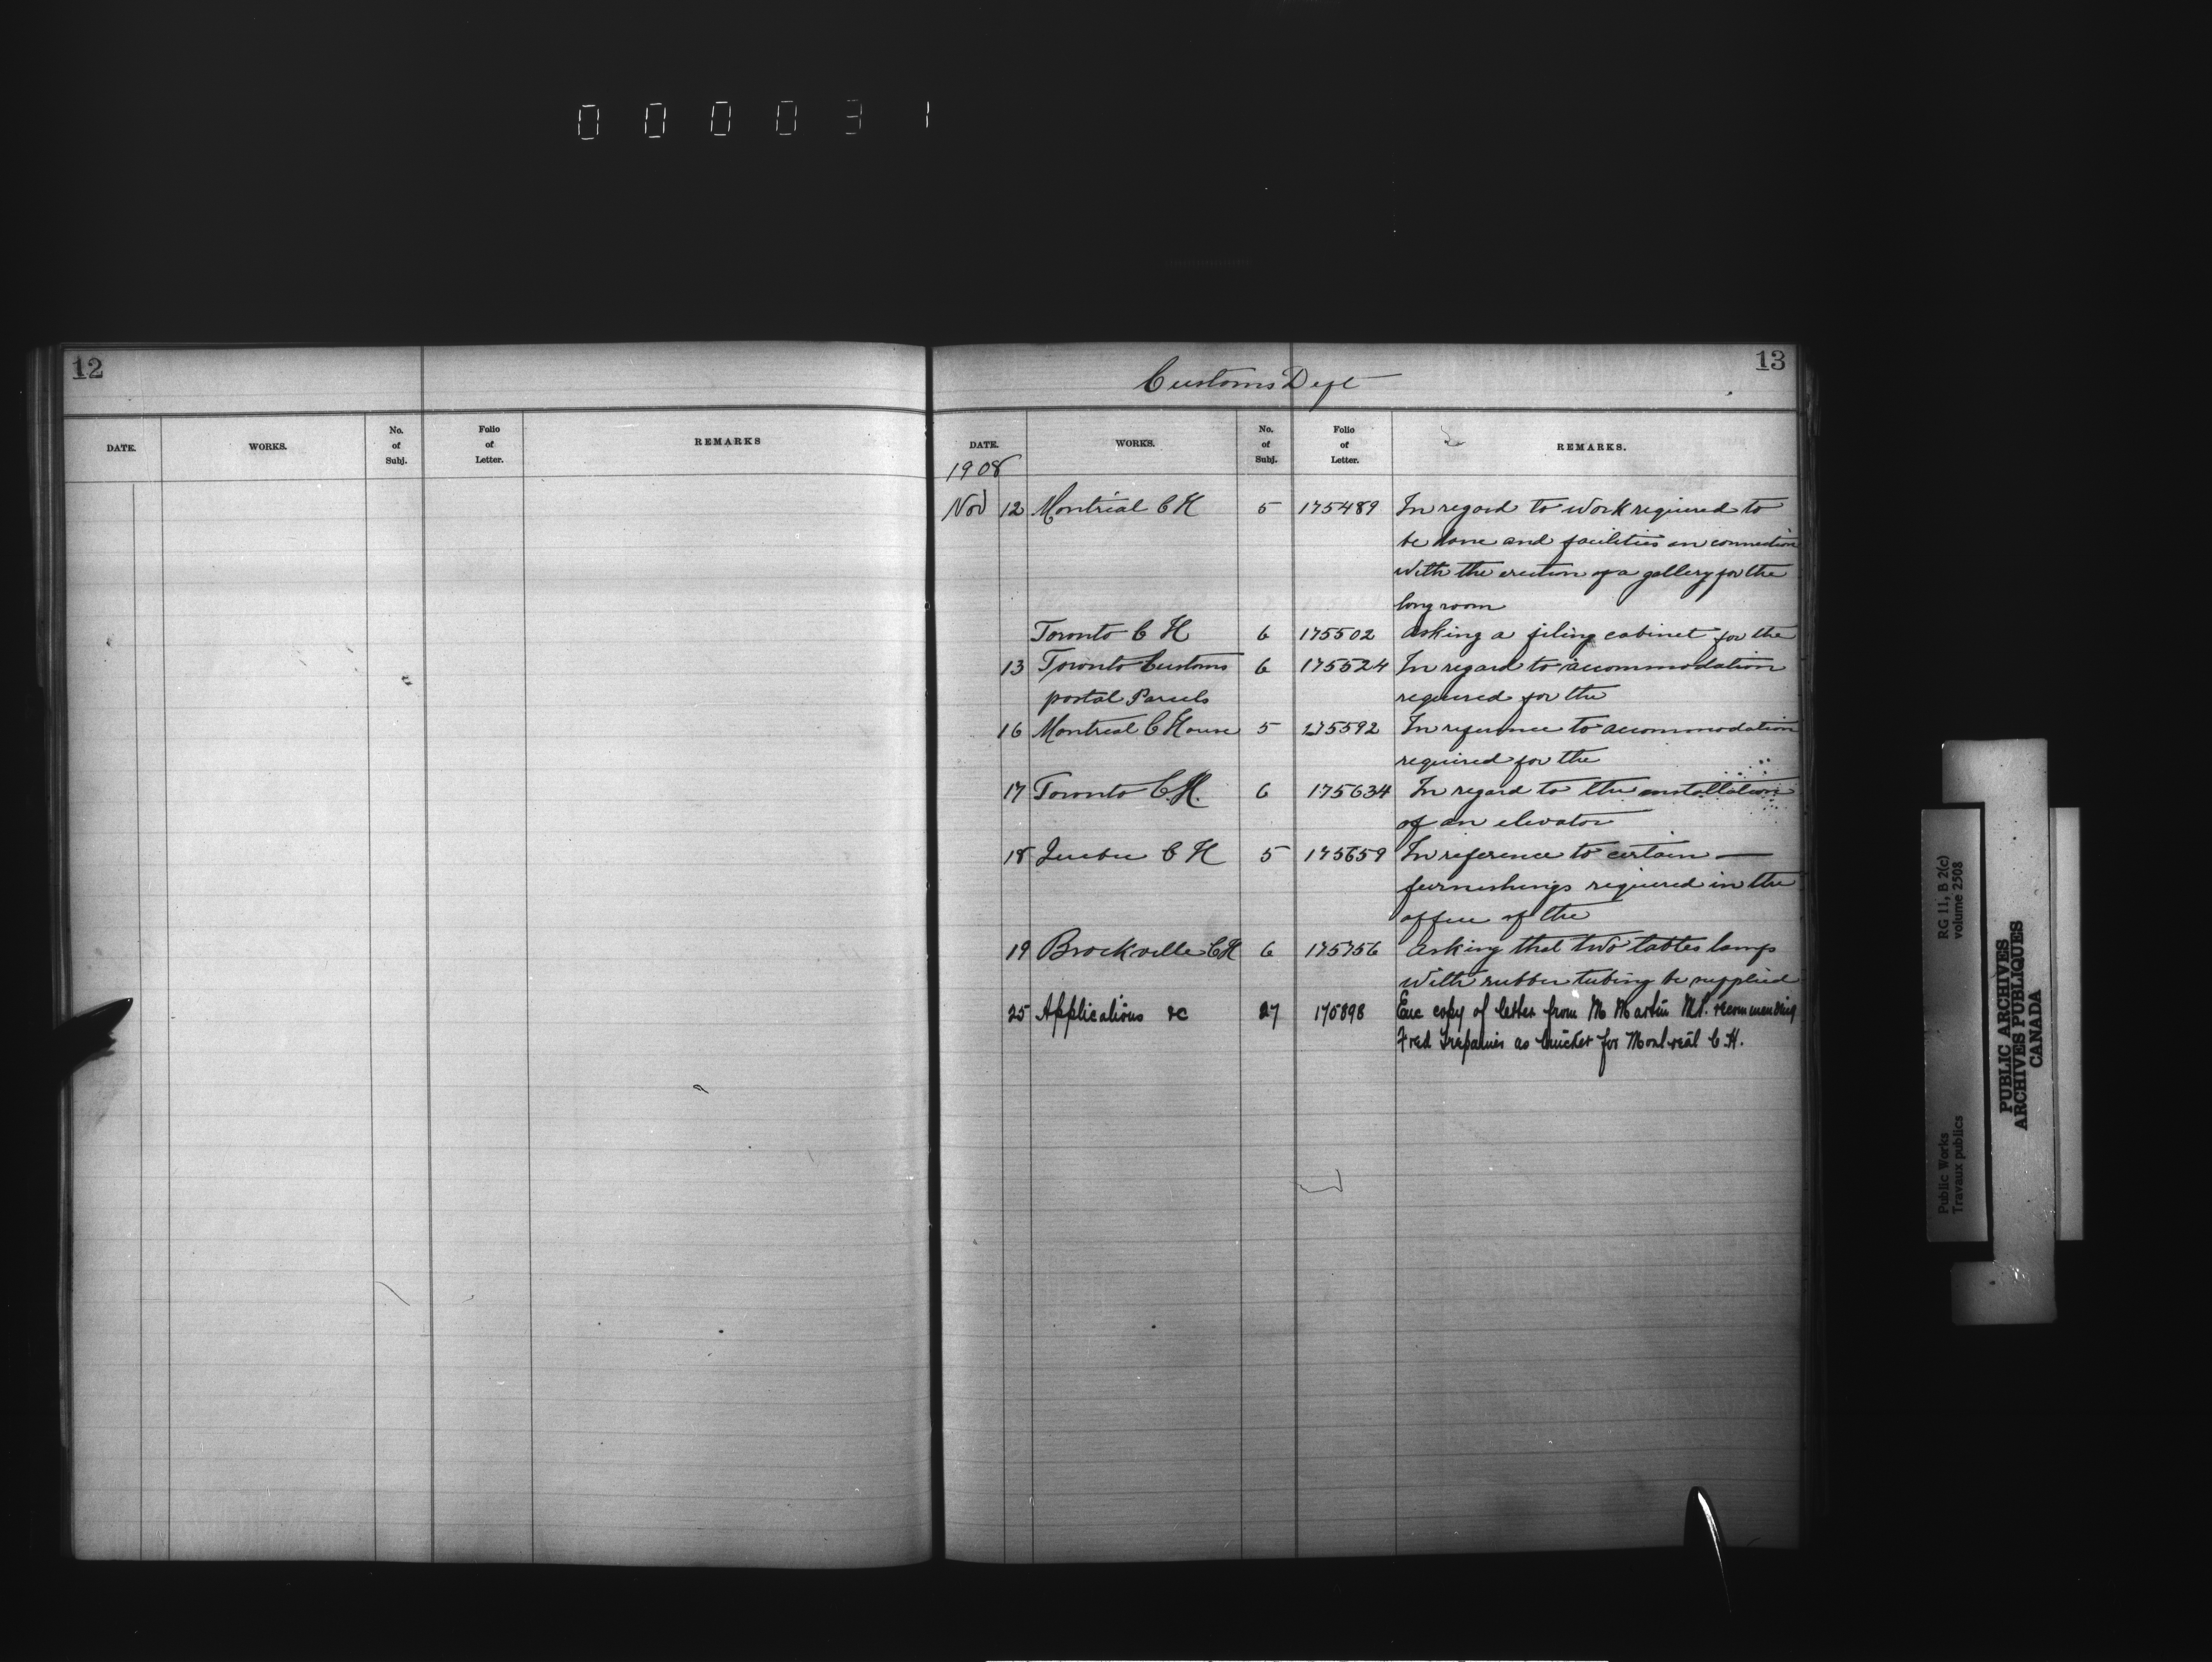 0 0 0 0 3 1
12
DATE. WORKS. No. of Subj. Folio of Letter. REMARKS
13
Customs Dept
DATE. WORKS. No. of Subj. Folio of Letter. REMARKS.
1908
Nov 12 Montreal C H 5 175489 In regard to work required to
be done and facilities in connection
with the erection of a gallery for the
long room
Toronto C H 6 175502 asking a filing cabinet for the
13 Toronto Customs 6 175524 In regard to accommodation
postal Parcels required for the
16 Montreal C House 5 175592 In reference to accommodation
required for the
17 Toronto C.H. 6 175634 In regard to the installation
of an elevator
18 Quebec C H 5 175659 In reference to certain —
furnishings required in the
office of the
19 Brockville CH 6 175756 asking that two tables lamps
with rubber tubing be supplied
25 Applications &c 27 175898 Enc copy of letter from M Martin M.P. recommending
Fred Trepanier as for Montreal C.H.
Public Works
Travaux publics
RG 11, B 2(c)
volume 2508
PUBLIC ARCHIVES
ARCHIVES PUBLIQUES
CANADA